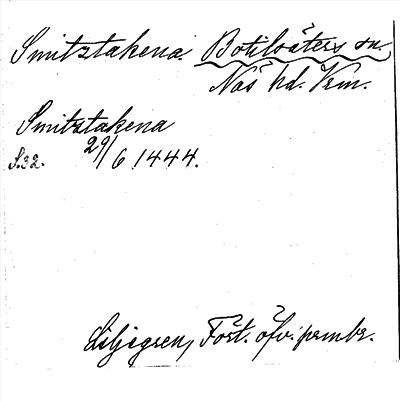 Smitztakena. Botilsäters sn.
Näs hd. Vrm.
Smitztakena
S.32. 29/6 1444.
Liljegren, Fört. öfv. permbr.